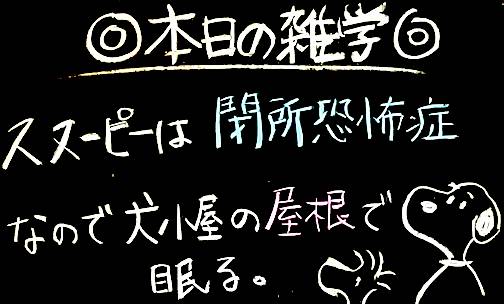 ◎本日の雑学◎
スヌーピーは 閉所恐怖症
なので犬小屋の屋根で
眠る。